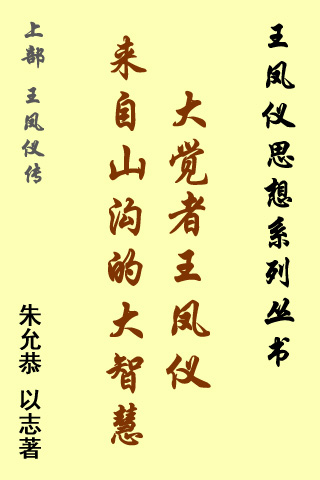 王凤仪思想系列丛书
大觉者王凤仪
来自山沟的大智慧
上部 王凤仪传
朱允恭 以志著